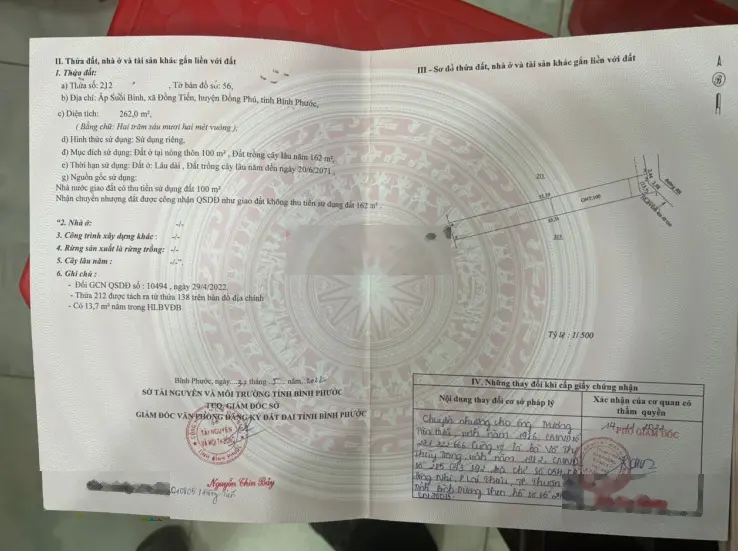 II. Thửa đất, nhà ở và tài sản khác gắn liền với đất
1. Thửa đất:
a) Thửa số: 212 , Tờ bản đồ số: 56,
b) Địa chỉ: Ấp Suối Binh, xã Đồng Tiến, huyện Đồng Phú, tỉnh Bình Phước,
c) Diện tích: 262,0 m²,
( Bằng chữ: Hai trăm sáu mươi hai mét vuông ),
d) Hình thức sử dụng: Sử dụng riêng,
đ) Mục đích sử dụng: Đất ở tại nông thôn 100 m² , Đất trồng cây lâu năm 162 m²,
e) Thời hạn sử dụng: Đất ở: Lâu dài , Đất trồng cây lâu năm đến ngày 20/6/2071 ,
g) Nguồn gốc sử dụng:
Nhà nước giao đất có thu tiền sử dụng đất 100 m²
Nhận chuyển nhượng đất được công nhận QSDĐ như giao đất không thu tiền sử dụng đất 162 m² .
"2. Nhà ở: -/-
3. Công trình xây dựng khác : -/-
4. Rừng sản xuất là rừng trồng: -/-
5. Cây lâu năm : -/-".
6. Ghi chú :
- Đổi GCN QSDĐ số : 10494 , ngày 29/4/2022.
- Thửa 212 được tách ra từ thửa 138 trên bản đồ địa chính
- Có 13,7 m² nằm trong HLBVĐB
Bình Phước, ngày tháng năm
SỞ TÀI NGUYÊN VÀ MÔI TRƯỜNG TỈNH BÌNH PHƯỚC
TUQ. GIÁM ĐỐC SỞ
GIÁM ĐỐC VĂN PHÒNG ĐĂNG KÝ ĐẤT ĐAI TỈNH BÌNH PHƯỚC
SỞ
TÀI NGUYÊN
VÀ MÔI TRƯỜNG
Nguyễn Chín Bảy
III – Sơ đồ thửa đất, nhà ở và tài sản khác gắn liền với đất
B
211
Tỷ lệ : 1/ 500
IV. Những thay đổi khi cấp giấy chứng nhận
Nội dung thay đổi cơ sở pháp lý
Xác nhận của cơ quan có
thẩm quyền
Chuyển nhượng cho ông Trương
sinh năm 1976, CMND số
cùng vợ là bà Võ Thị
Thùy Trang, sinh năm
GIÁM ĐỐC